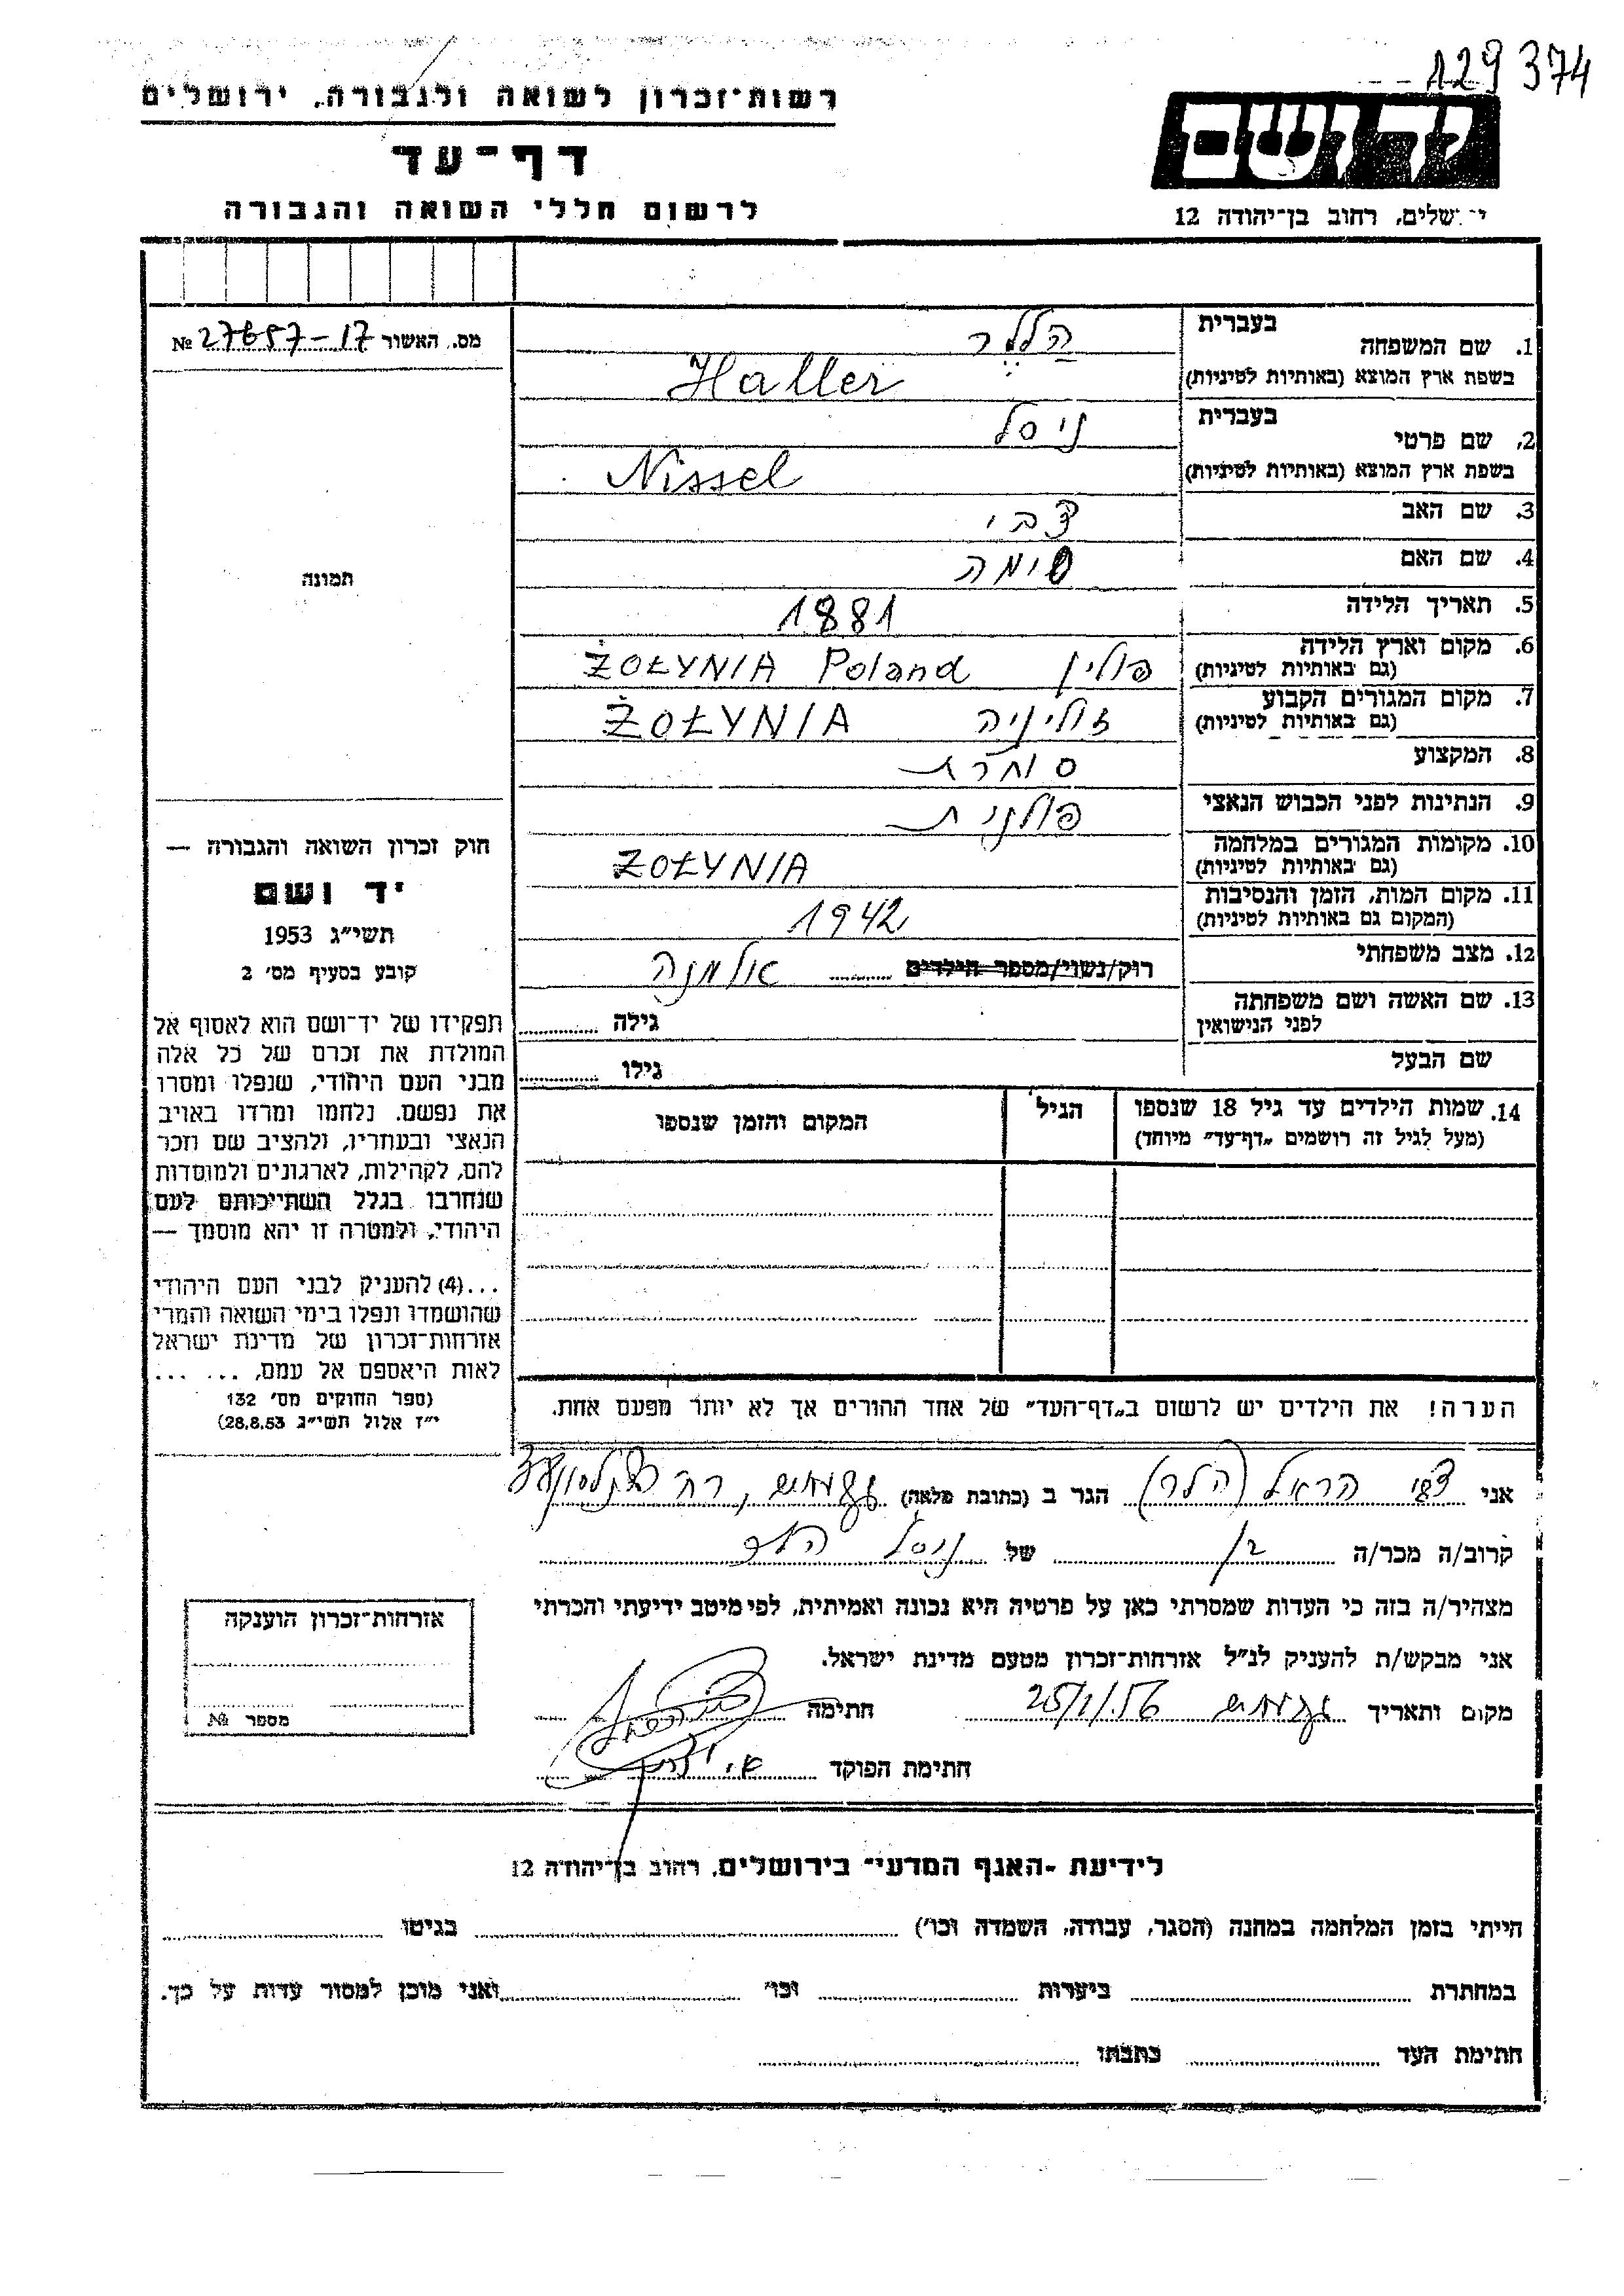 129374
רשות־זכרון לשואה ולגבורה, ירושלים
דף־עד
לרשום חללי השואה והגבורה
יד ושם
ירושלים, רחוב בן־יהודה 12
מס. האשור № 27657-17
תמונה
1. שם המשפחה בעברית הללר
בשפת ארץ המוצא (באותיות לטיניות) Haller
2. שם פרטי בעברית ניסל
בשפת ארץ המוצא (באותיות לטיניות) Nissel
3. שם האב צבי
4. שם האם סימה
5. תאריך הלידה 1881
6. מקום וארץ הלידה (גם באותיות לטיניות) פולין ŻOŁYNIA Poland
7. מקום המגורים הקבוע (גם באותיות לטיניות) זוליניה ŻOŁYNIA
8. המקצוע סוחרת
9. הנתינות לפני הכבוש הנאצי פולנית
10. מקומות המגורים במלחמה (גם באותיות לטיניות) ŻOŁYNIA
11. מקום המות, הזמן והנסיבות (המקום גם באותיות לטיניות) 1942
12. מצב משפחתי רוק/נשוי/מספר הילדים אלמנה
13. שם האשה ושם משפחתה לפני הנישואין גילה
שם הבעל גילו
14. שמות הילדים עד גיל 18 שנספו (מעל לגיל זה רושמים „דף־עד” מיוחד) הגיל המקום והזמן שנספו
חוק זכרון השואה והגבורה —
יד ושם
תשי"ג 1953
קובע בסעיף מס' 2
תפקידו של יד־ושם הוא לאסוף אל
המולדת את זכרם של כל אלה
מבני העם היהודי, שנפלו ומסרו
את נפשם, נלחמו ומרדו באויב
הנאצי ובעוזריו, ולהציב שם וזכר
להם, לקהילות, לארגונים ולמוסדות
שנחרבו בגלל השתייכותם לעם
היהודי, ולמטרה זו יהא מוסמך —
...(4) להעניק לבני העם היהודי
שהושמדו ונפלו בימי השואה והמרי
אזרחות־זכרון של מדינת ישראל
לאות היאספם אל עמם, ... ...
(ספר החוקים מס' 132
י"ז אלול תשי"ג 28.8.53)
הערה! את הילדים יש לרשום ב„דף־העד” של אחד ההורים אך לא יותר מפעם אחת.
אני צבי הראל (הלר) הגר ב (כתובת מלאה) רח'
קרוב/ה מכר/ה בן של ניסל הלר
מצהיר/ה בזה כי העדות שמסרתי כאן על פרטיה היא נכונה ואמיתית, לפי מיטב ידיעתי והכרתי
אני מבקש/ת להעניק לנ"ל אזרחות־זכרון מטעם מדינת ישראל.
מקום ותאריך 25/1/.56 חתימה
חתימת הפוקד
אזרחות־זכרון הוענקה
מספר №
לידיעת -האגף המדעי־ בירושלים, רחוב בן־יהודה 12
הייתי בזמן המלחמה במחנה (הסגר, עבודה, השמדה וכו') בגיטו
במחתרת ביערות וכו' ואני מוכן למסור עדות על כך.
חתימת העד כתבתו